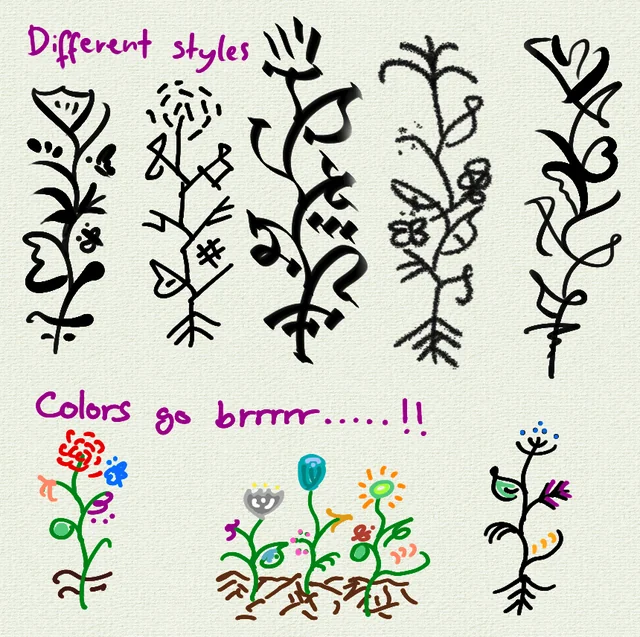 Different styles
Colors go brrrrr.....!!